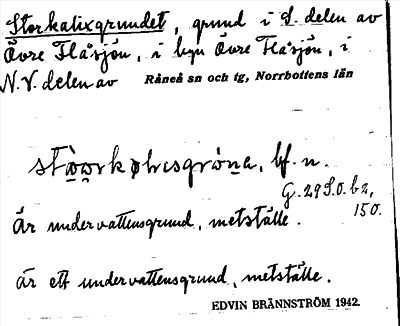 Storkalixgrundet, grund i S. delen av
Övre Flåsjön, i byn Övre Flåsjön, i
N.V. delen av Råneå sn och tg, Norrbottens län
bf. n.
G. 29 S.O. b2,
150.
är undervattensgrund, metställe.
är ett undervattensgrund, metställe.
EDVIN BRÄNNSTRÖM 1942.